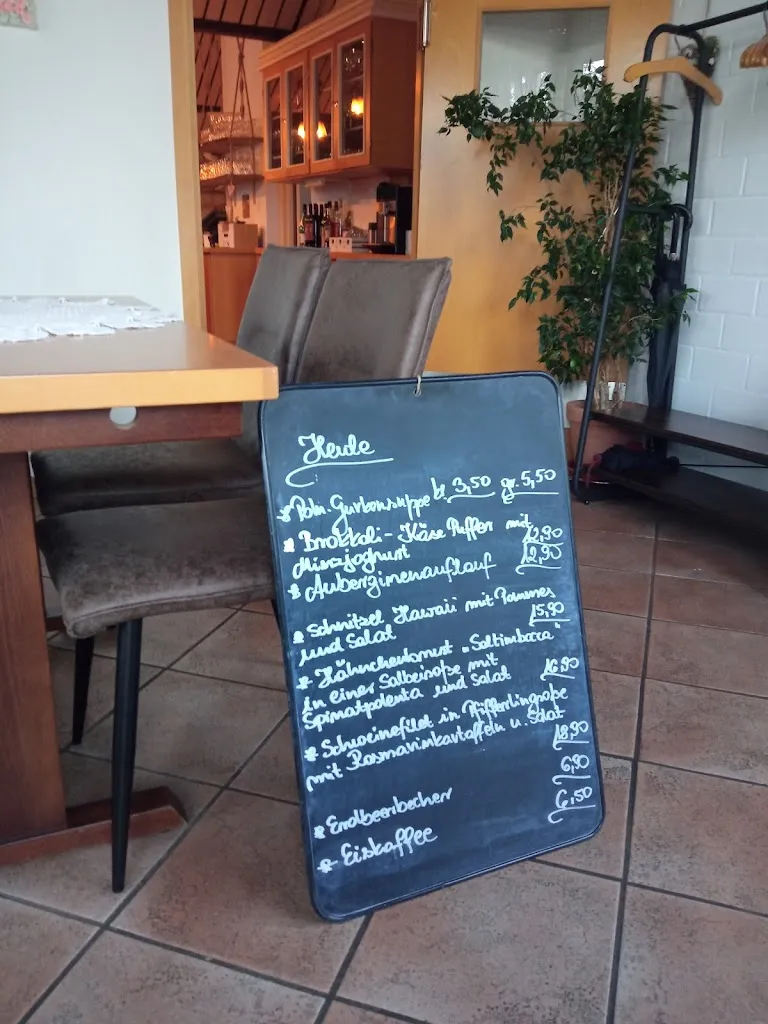 Heute
* Poln. Gurkensuppe kl. 3,50 gr. 5,50
* Brokkoli-Käse Puffer mit
Minzjoghurt 12,90
* Auberginenauflauf 12,90
* Schnitzel Hawaii mit Pommes
und Salat 15,90
* Hähnchenbrust "Saltimbocca"
in einer Salbeisoße mit
Spinatpolenta und Salat 16,90
* Schweinefilet in Pfifferlingsoße
mit Rosmarinkartoffeln u. Salat
18,90
* Erdbeerbecher 6,90
* Eiskaffee 6,50